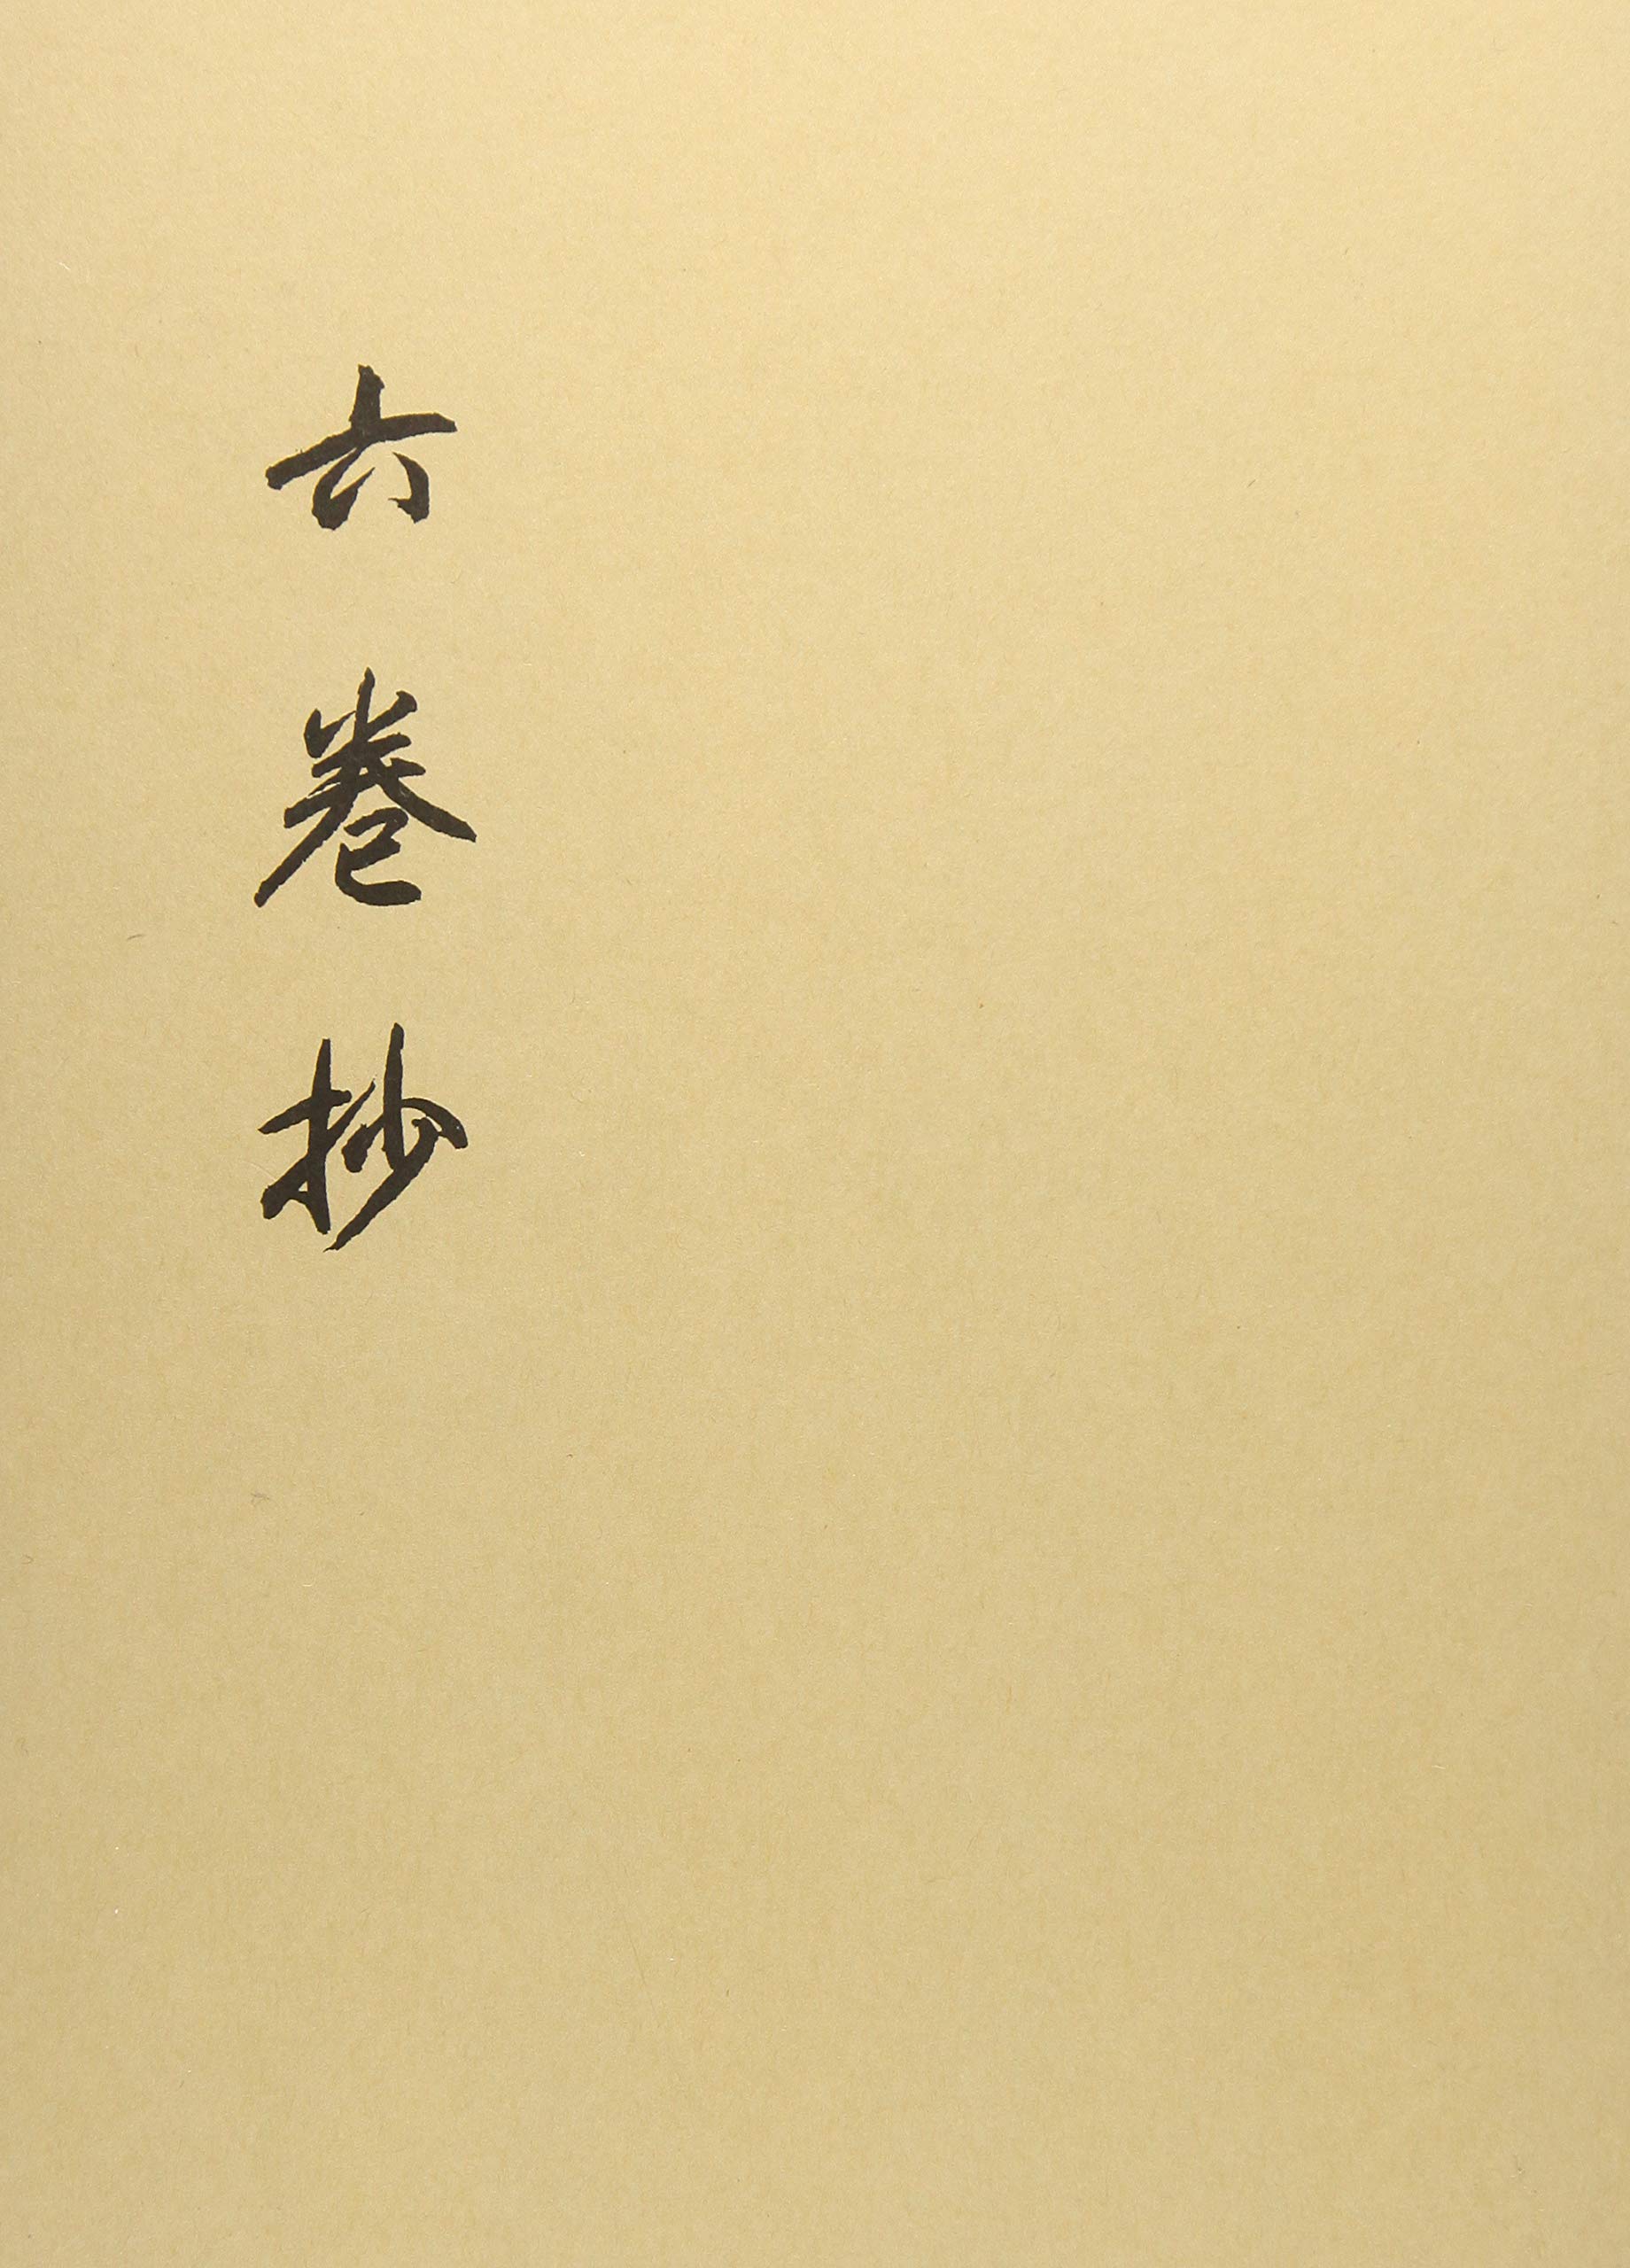 六巻抄